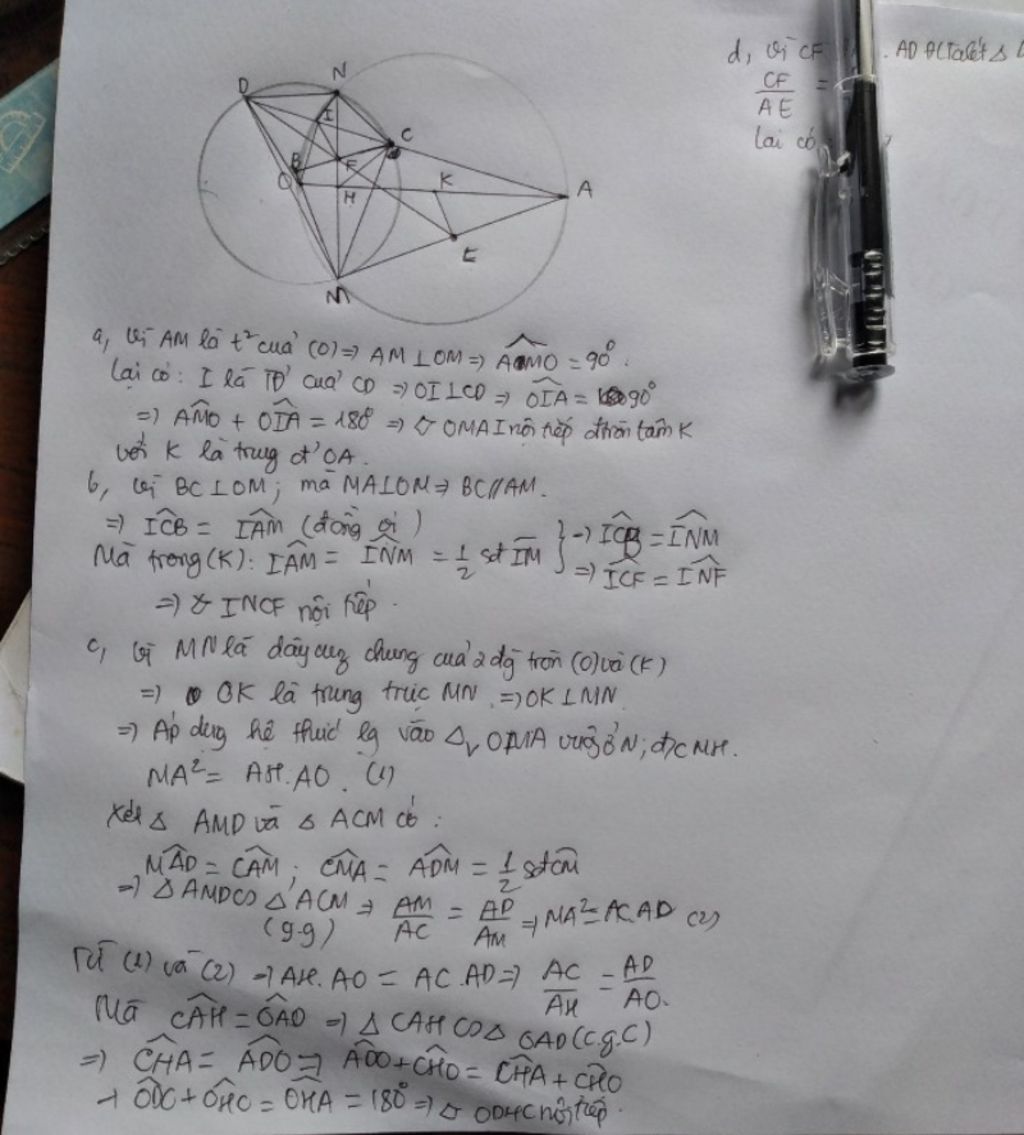 D
N
I
C
B
F
K
O
H
A
E
M
d, vì CF . AD ĐL Talét Δ
CF/AE =
lại có
a, vì AM là t² của (O) ⇒ AM ⊥ OM ⇒ AMO = 90°.
Lại có: I là TĐ của CD ⇒ OI ⊥ CD ⇒ OIA = 90°
⇒ AMO + OIA = 180° ⇒ OMAI nội tiếp đtròn tâm K
với K là trung đ' OA.
b, vì BC ⊥ OM; mà MA ⊥ OM ⇒ BC // AM.
⇒ ICB = IAM (đồng vị)
Mà trong (K): IAM = INM = 1/2 sđ IM } ⇒ ICB = INM
⇒ ICF = INF
⇒ INCF nội tiếp.
c, vì MN là dây cung chung của 2 đg tròn (O) và (K)
⇒ OK là trung trực MN. ⇒ OK ⊥ MN
⇒ Áp dụng hệ thức lg vào Δv OMA vuông ở N; đ/c MH.
MA² = AH.AO. (1)
Xét Δ AMD và Δ ACM có:
MAD = CAM; CMA = ADM = 1/2 sđ CM
⇒ Δ AMD ∽ Δ ACM ⇒ AM/AC = AD/AM ⇒ MA² = AC.AD (2)
(g-g)
Từ (1) và (2) ⇒ AH.AO = AC.AD ⇒ AC/AH = AD/AO.
Mà CAH = OAD ⇒ Δ CAH ∽ Δ OAD (c.g.c)
⇒ CHA = ADO ⇒ ADO + CHO = CHA + CHO
⇒ ODC + OHC = OHA = 180° ⇒ ODHC nội tiếp.